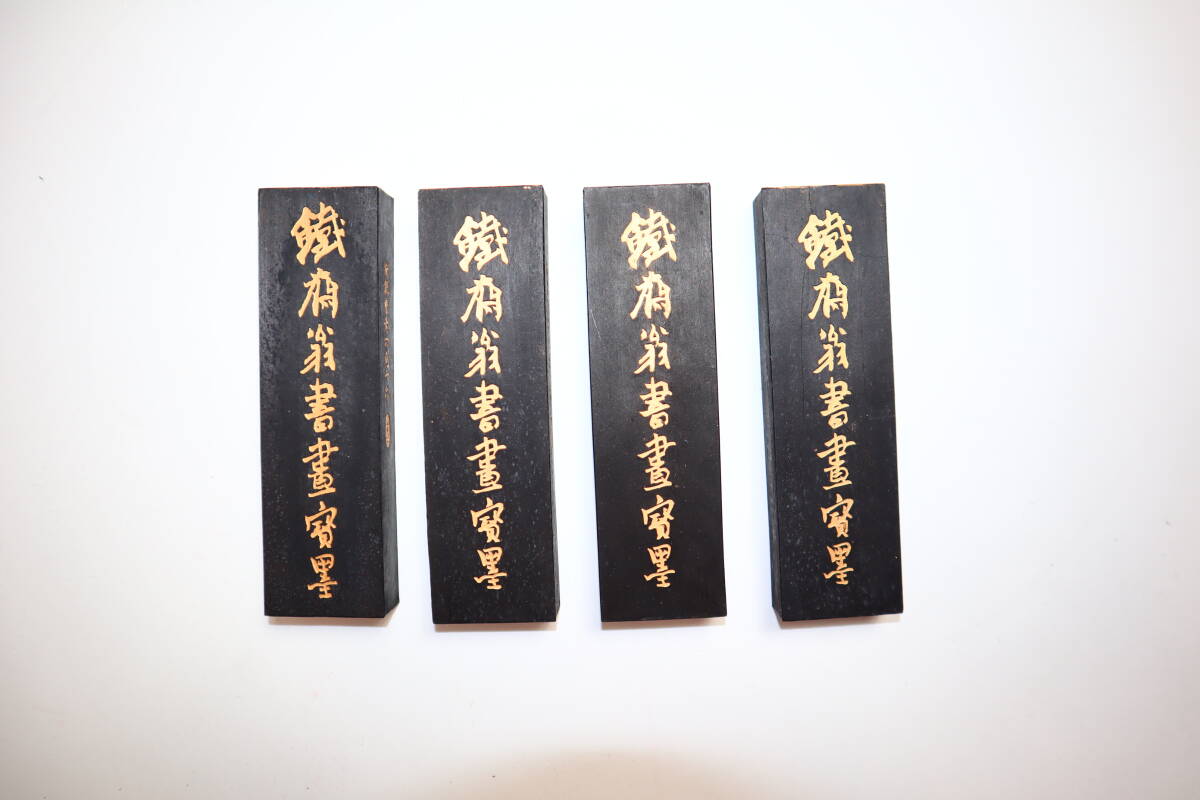 鐵齋翁書畫寶墨
鐵齋翁書畫寶墨
鐵齋翁書畫寶墨
鐵齋翁書畫寶墨